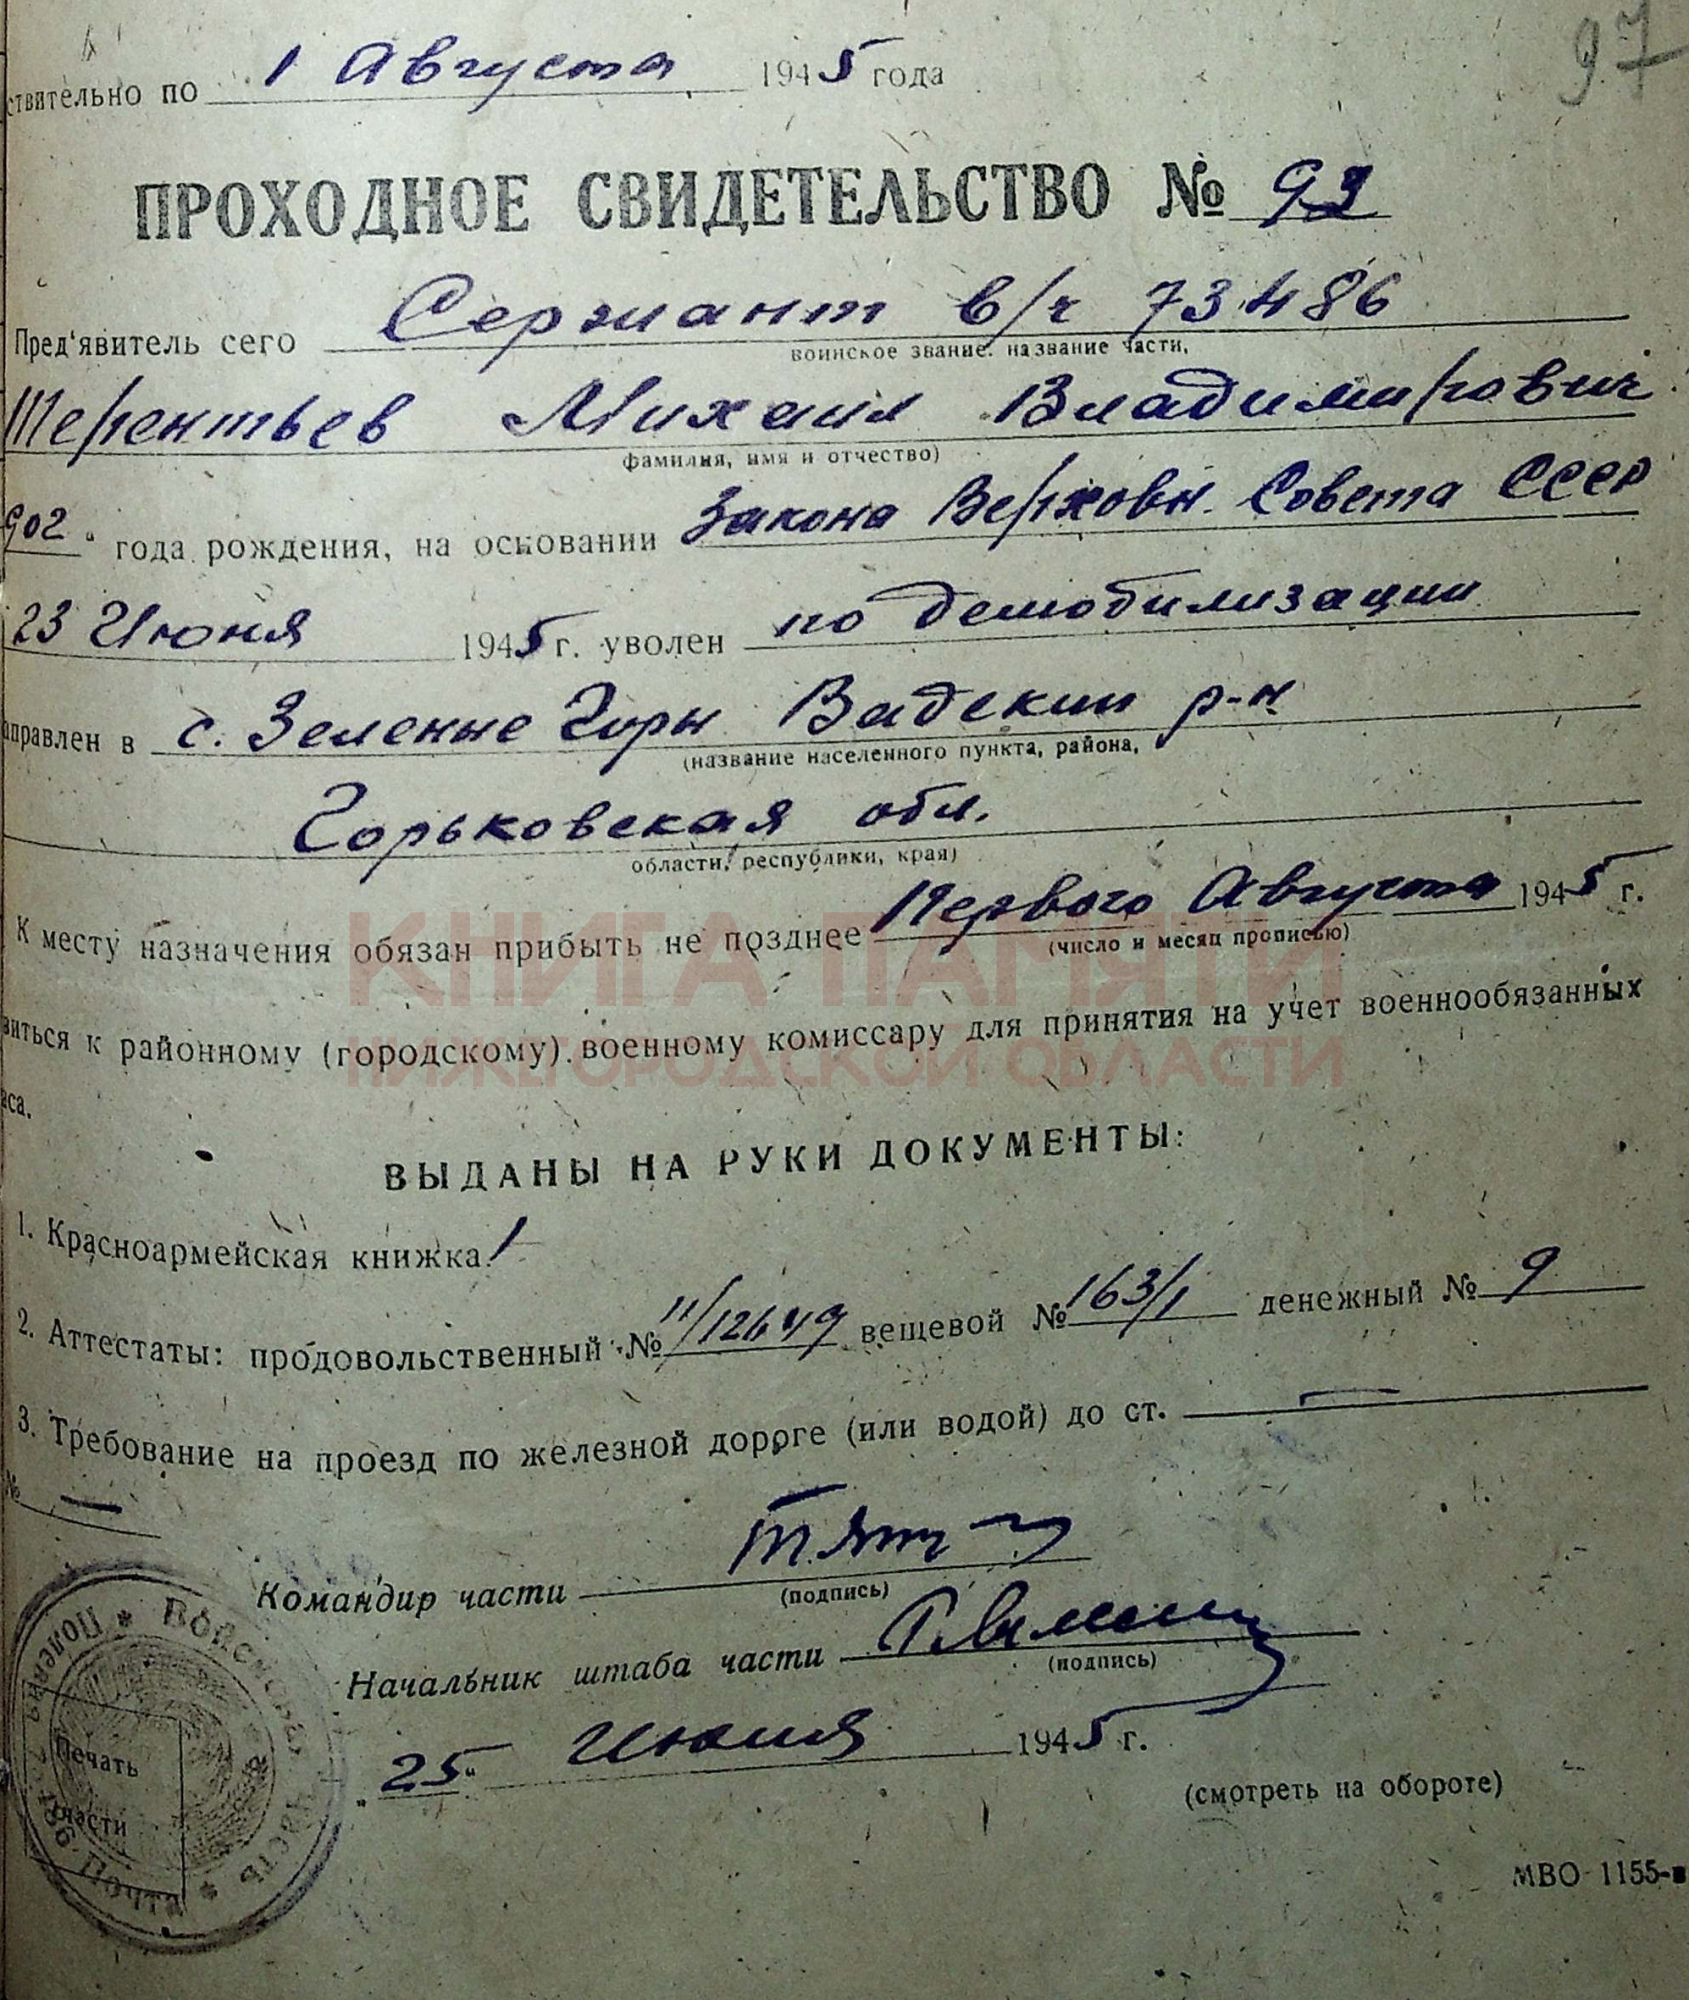 97
ствительно по 1 Августа 1945 года
ПРОХОДНОЕ СВИДЕТЕЛЬСТВО № 93
Пред'явитель сего Сержант в/ч 73486
воинское звание. название части,
Терентьев Михаил Владимирович
фамилия, имя и отчество)
902 года рождения, на основании Закона Верховн. Совета СССР
23 Июня 1945 г. уволен по демобилизации
аправлен в с. Зеленые Горы Вадский р-н
(название населенного пункта, района,
Горьковская обл.
области, республики, края)
К месту назначения обязан прибыть не позднее Первого Августа 1945 г.
(число и месяц прописью)
КНИГА ПАМЯТИ
виться к районному (городскому) военному комиссару для принятия на учет военнообязанных
НИЖЕГОРОДСКОЙ ОБЛАСТИ
аса.
ВЫДАНЫ НА РУКИ ДОКУМЕНТЫ:
1. Красноармейская книжка 1
2. Аттестаты: продовольственный № 11/12649 вещевой № 163/1 денежный № 9
3. Требование на проезд по железной дороге (или водой) до ст. —
№ —
Командир части
(подпись)
Начальник штаба части
(подпись)
Войсковая часть * Полевая Почта *
Печать
части
"25" Июля 1945 г.
(смотреть на обороте)
МВО 1155-в